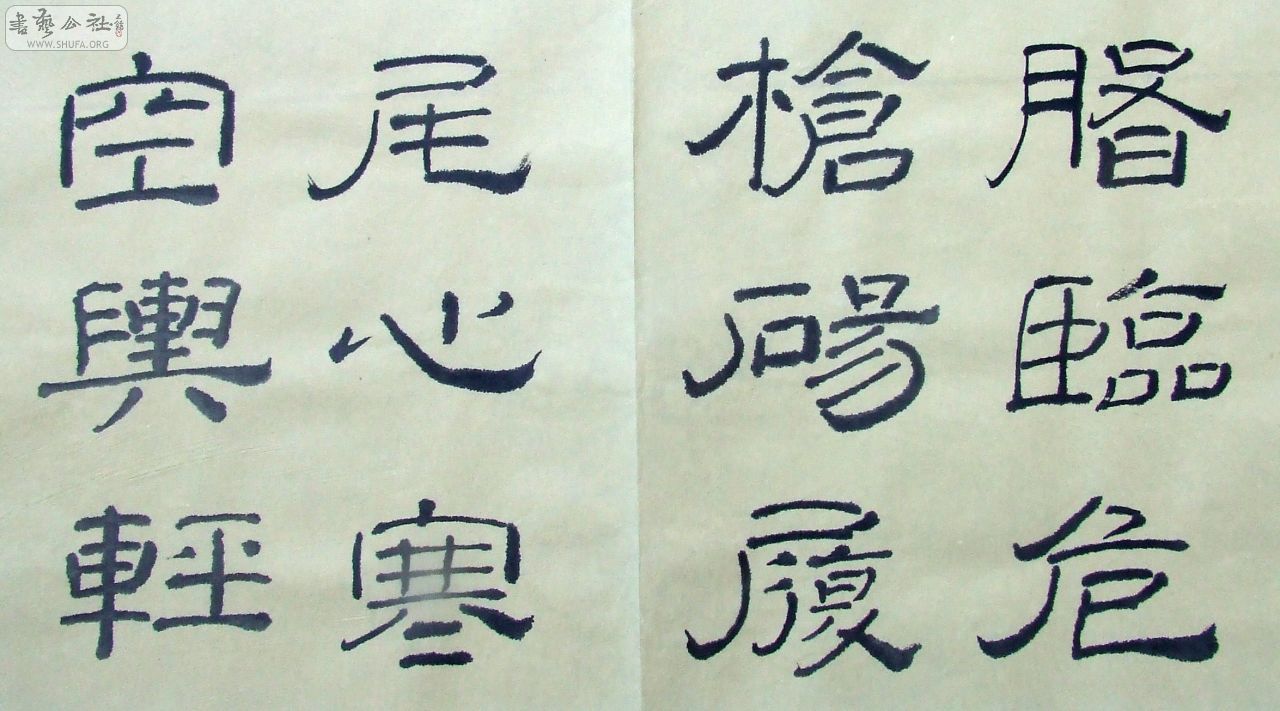 書藝公社
WWW.SHUFA.ORG
臨危
槍碭履
尾心寒
空輿輕